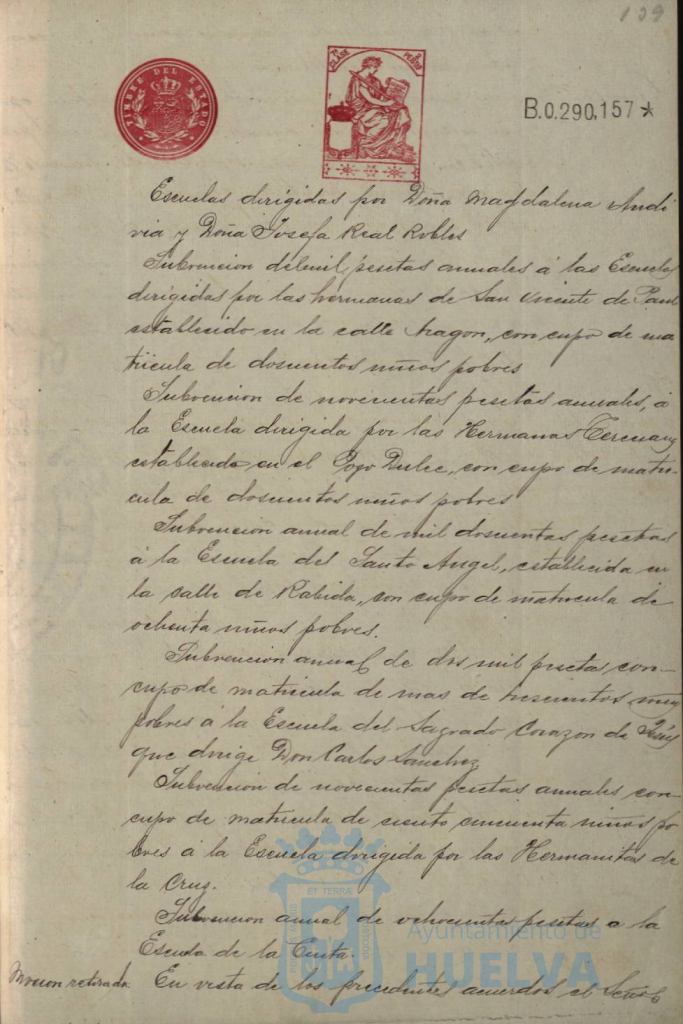 139
TIMBRE DEL ESTADO
7ª CLASE
PESOS
B.0.290,157*
Escuelas dirigidas por Doña Magdalena Andi
via y Doña Josefa Real Robles
Subvencion de mil pesetas annales á las Escuelas
dirigidas por las hermanas de San Vicente de Paul
establecido en la calle Aragon, con cupo de ma
tricula de doscuentos niños pobres
Subvencion de novecientas pesetas anuales, á
la Escuela dirigida por las Hermanas Terciarias
establecida en el Pozo Dulce, con cupo de matri-
cula de doscuentos niños pobres
Subvencion annal de mil doscuentas pesetas
á la Escuela del Santo Angel, establecida en
la calle de Rabida, con cupo de matricula de
ochenta niños pobres.
Subvencion annal de dos mil pesetas con-
cupo de matricula de mas de trescientos niños
pobres á la Escuela del Sagrado Corazon de Jesus
que dirige Don Carlos Sanchez
Subvencion de novecientas pesetas annales con-
cupo de matricula de ciento cincuenta niños po
bres á la Escuela dirigida por las Hermanitas de
la Cruz.
Subvencion annal de ochocientas pesetas a la
Escuela de la Cinta.
Mocion retirada En vista de los precedentes acuerdos el Señor
ET TERRAE
Ayuntamiento de
HUELVA